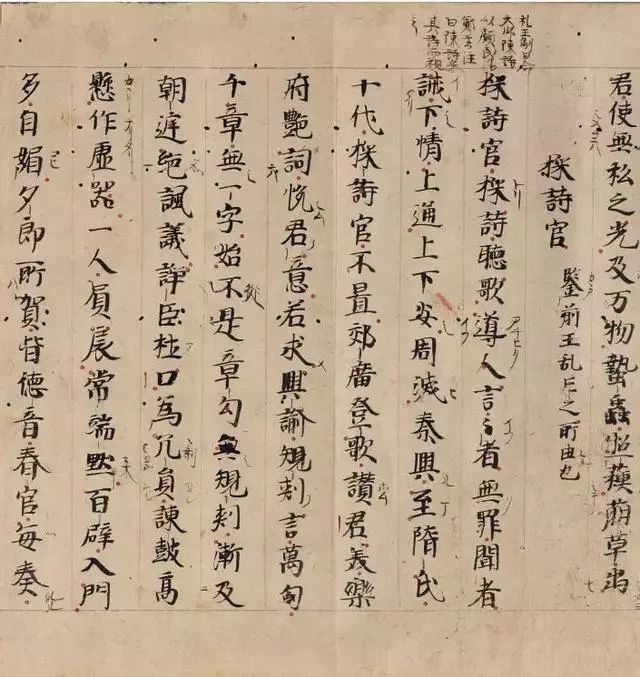 礼王制曰命
大師陳詩
以觀民風
鄭玄注
曰陳詩采
其詩而視
之
君使無私之光及万物蟄蟲昭蘓萠草出
採詩官 鑒前王乱亡之所由也
採詩官採詩聽歌導人言々者無罪聞者
誡下情上通上下安周滅秦興至隋氏
十代採詩官不置郊廟登歌讃君美樂
府艶詞悅君意若求興諭規刾言萬句
千章無一字始不是章勾無規刾漸及
朝廷絶諷議諍臣杜口為冗員諌鼓高
懸作虚器一人負扆常端默百辟入門
多自媚夕郎所賀皆德音春官每奏